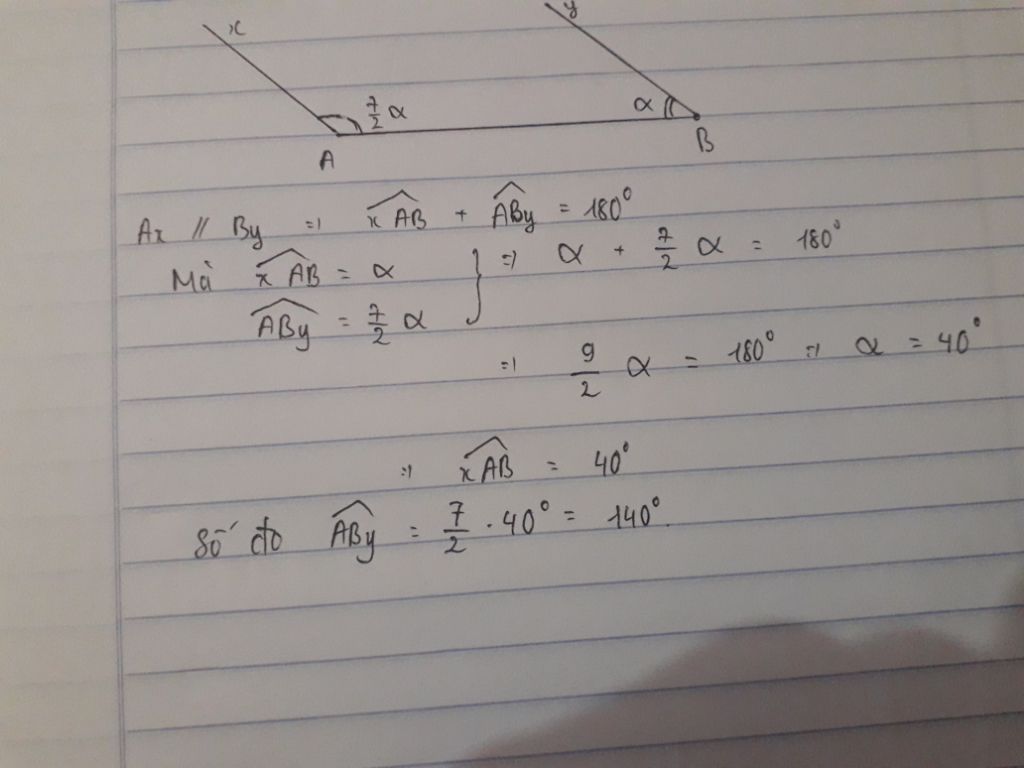 x y
7/2 α α
A B
Ax // By => xAB + ABy = 180°
Mà xAB = α } => α + 7/2 α = 180°
ABy = 7/2 α
=> 9/2 α = 180° => α = 40°
=> xAB = 40°
Số đo ABy = 7/2 . 40° = 140°.